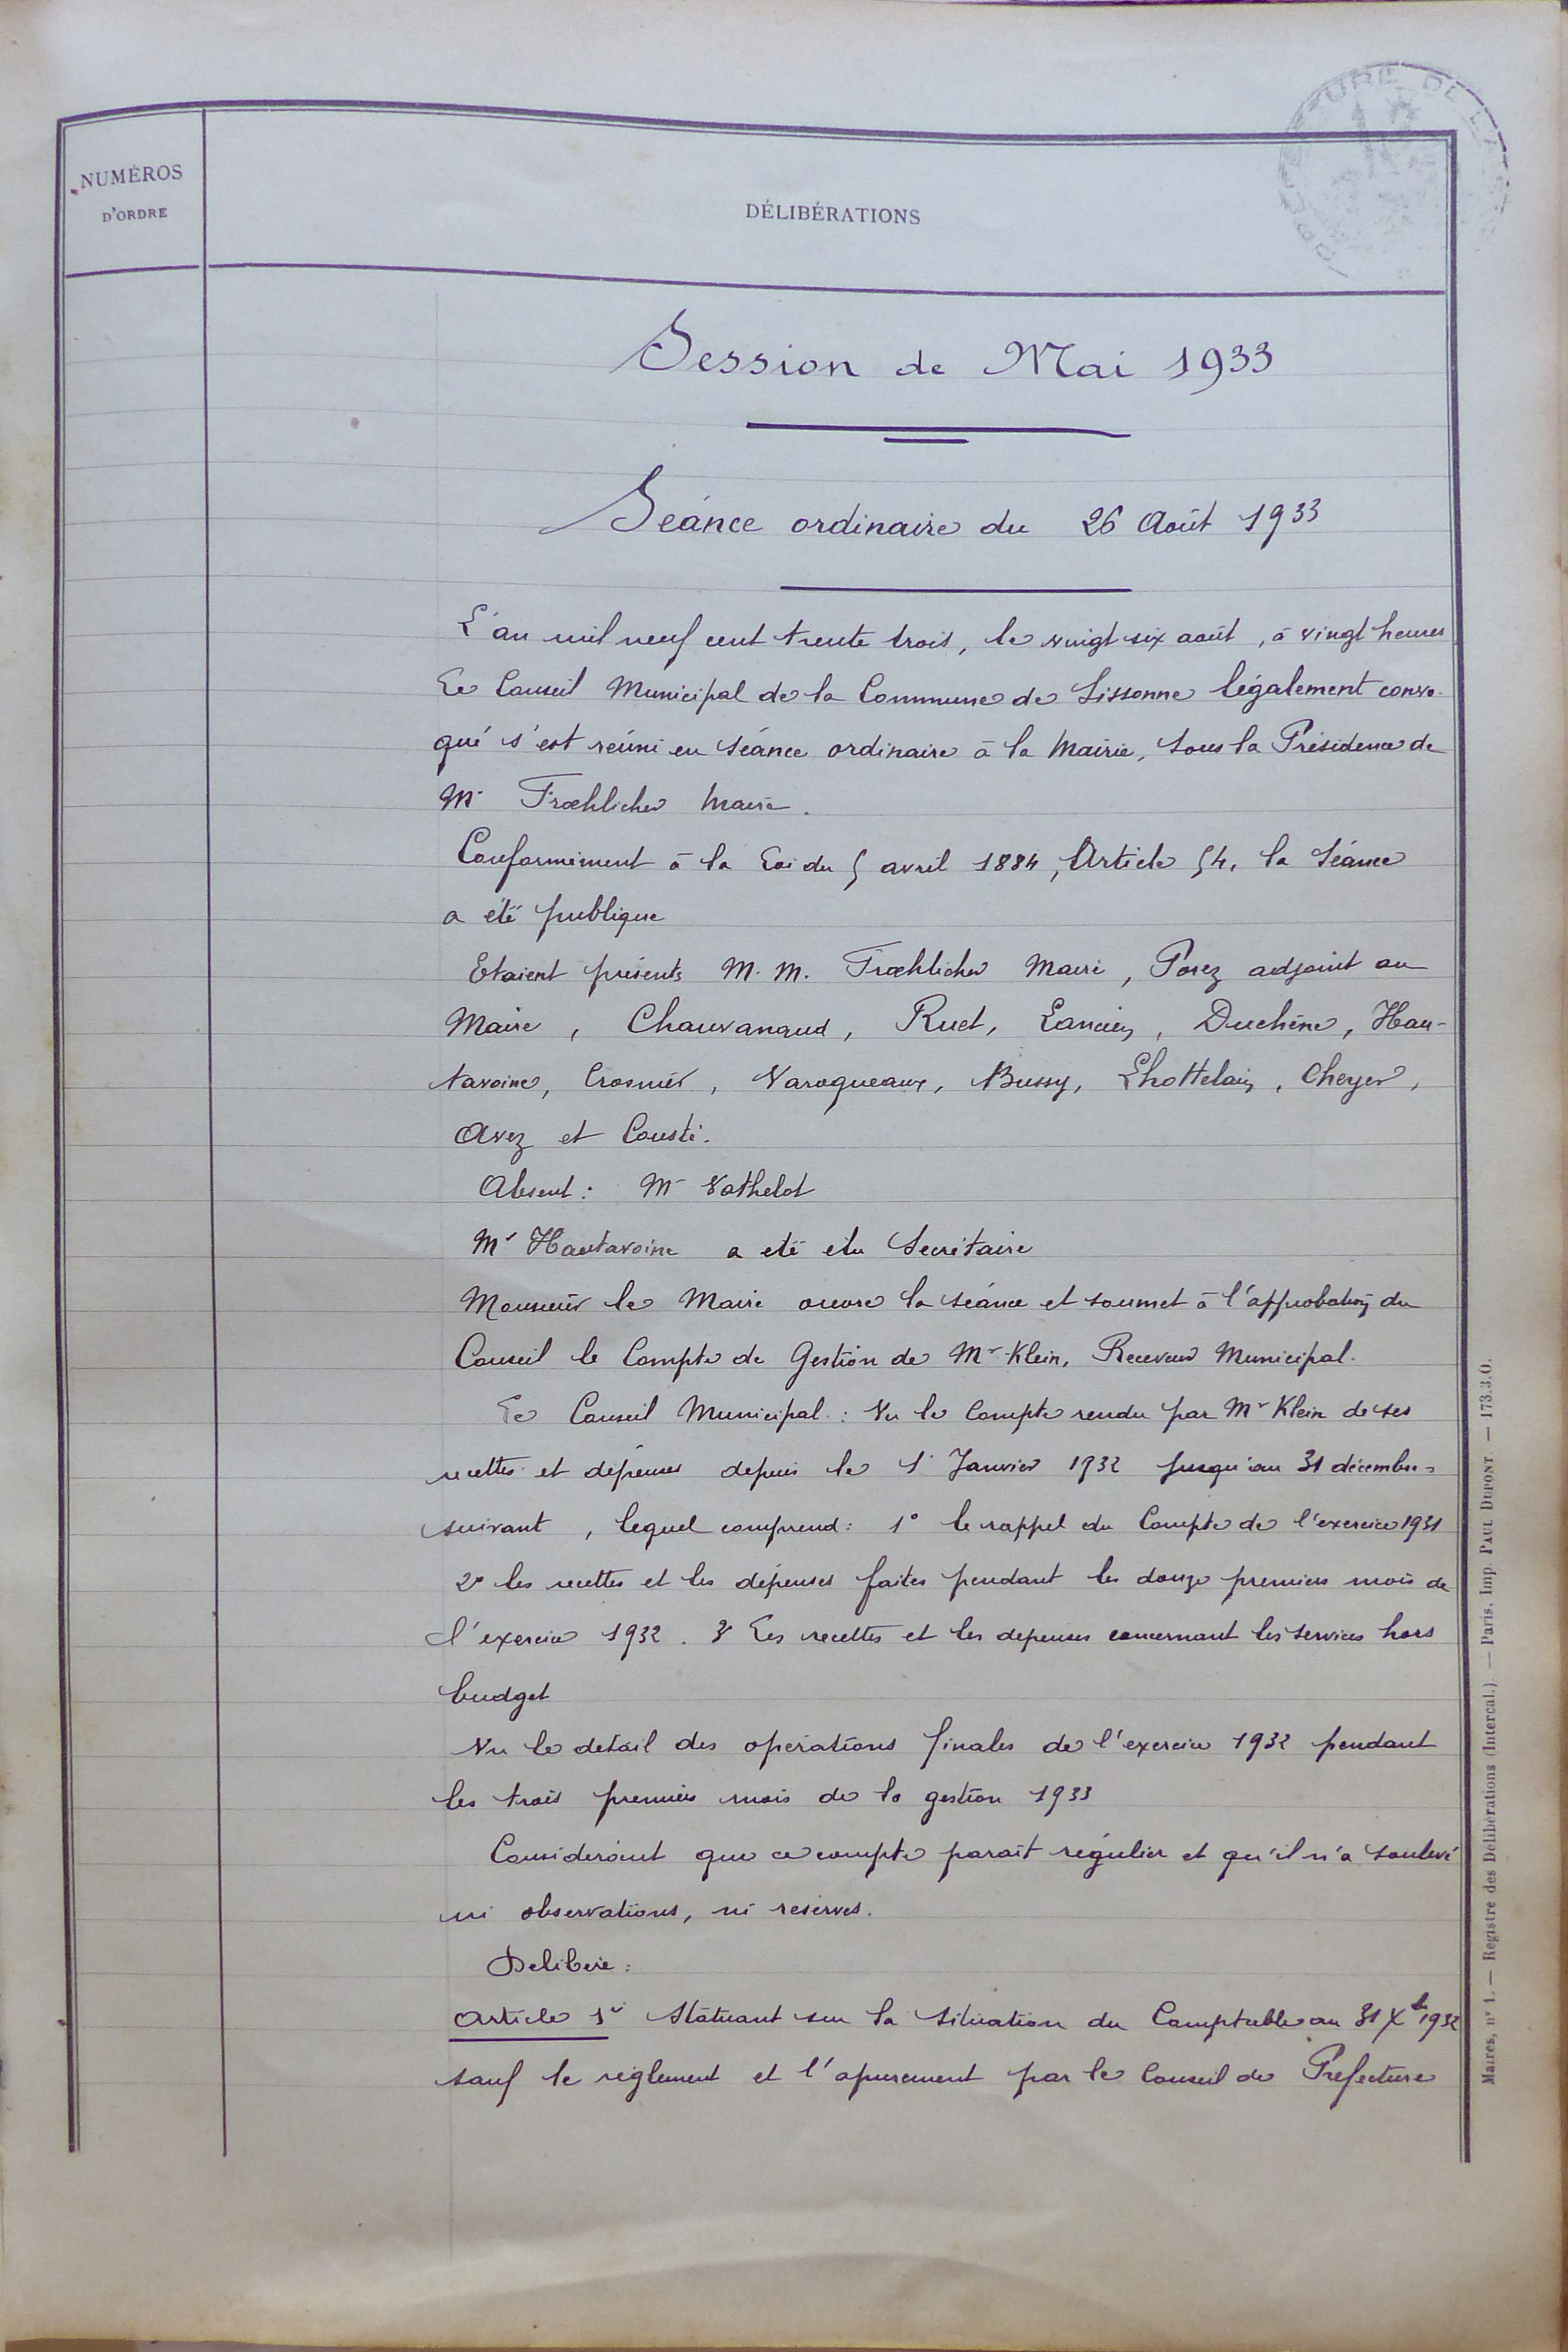 NUMÉROS
D'ORDRE
DÉLIBÉRATIONS
Session de Mai 1933
Séance ordinaire du 26 Août 1933
L'an mil neuf cent trente trois, le vingt six août, à vingt heures
Le Conseil Municipal de la Commune de Sissonne légalement convo-
qué s'est réuni en séance ordinaire à la Mairie, sous la Présidence de
Mr Froehlicher Maire.
Conformément à la Loi du 5 avril 1884, Article 54, la Séance
a été publique
Etaient présents M. M. Froehlicher Maire, Porez adjoint au
Maire, Chauvanaud, Ruet, Lancien, Duchêne, Hau-
tavoine, Crosnier, Varoqueaux, Bussy, Lhottelain, Cheyer,
Avez et Cousté.
Absent: Mr Vathelot
Mr Hautavoine a été élu Secrétaire
Monsieur le Maire ouvre la séance et soumet à l'approbation du
Conseil le Compte de Gestion de Mr Klein, Receveur Municipal.
Le Conseil Municipal: Vu le Compte rendu par Mr Klein de ses
recettes et dépenses depuis le 1er Janvier 1932 jusqu'au 31 décembre
suivant, lequel comprend: 1° le rappel du Compte de l'exercice 1931
2° les recettes et les dépenses faites pendant les douze premiers mois de
l'exercice 1932. 3° Les recettes et les depenses concernant les services hors
budget
Vu le detail des opérations finales de l'exercice 1932 pendant
les trois premiers mois de la gestion 1933
Considerant que ce compte parait régulier et qu'il n'a soulevé
ni observations, ni reserves.
Delibère:
Article 1er Statuant sur la situation du Comptable au 31 Xbre 1932
sauf le règlement et l'apurement par le Conseil de Prefecture
Maires, n° 1. — Registre des Délibérations (Intercal.). — Paris, Imp. PAUL DUPONT. — 173.3.O.